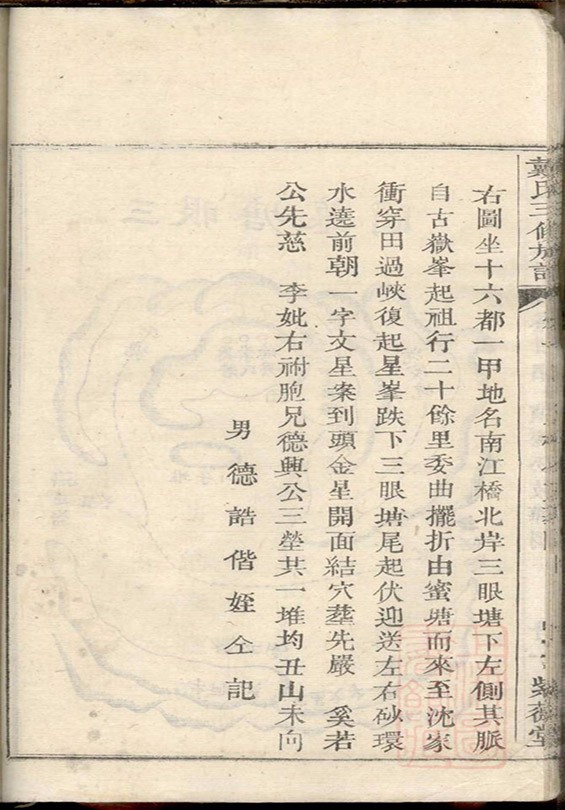 戴氏三修族譜
紫薇堂
右圖坐十六都一甲地名南江橋北岸三眼塘下左側其脈
自古嶽峯起祖行二十餘里委曲擺折由蜜塘而來至沈家
衝穿田過峽復起星峯跌下三眼塘尾起伏迎送左右砂環
水遶前朝一字文星案到頭金星開面結穴塟先嚴 奚若
公先慈 李妣右祔胞兄德興公三塋共一堆均丑山未向
男德誥偕姪仝記